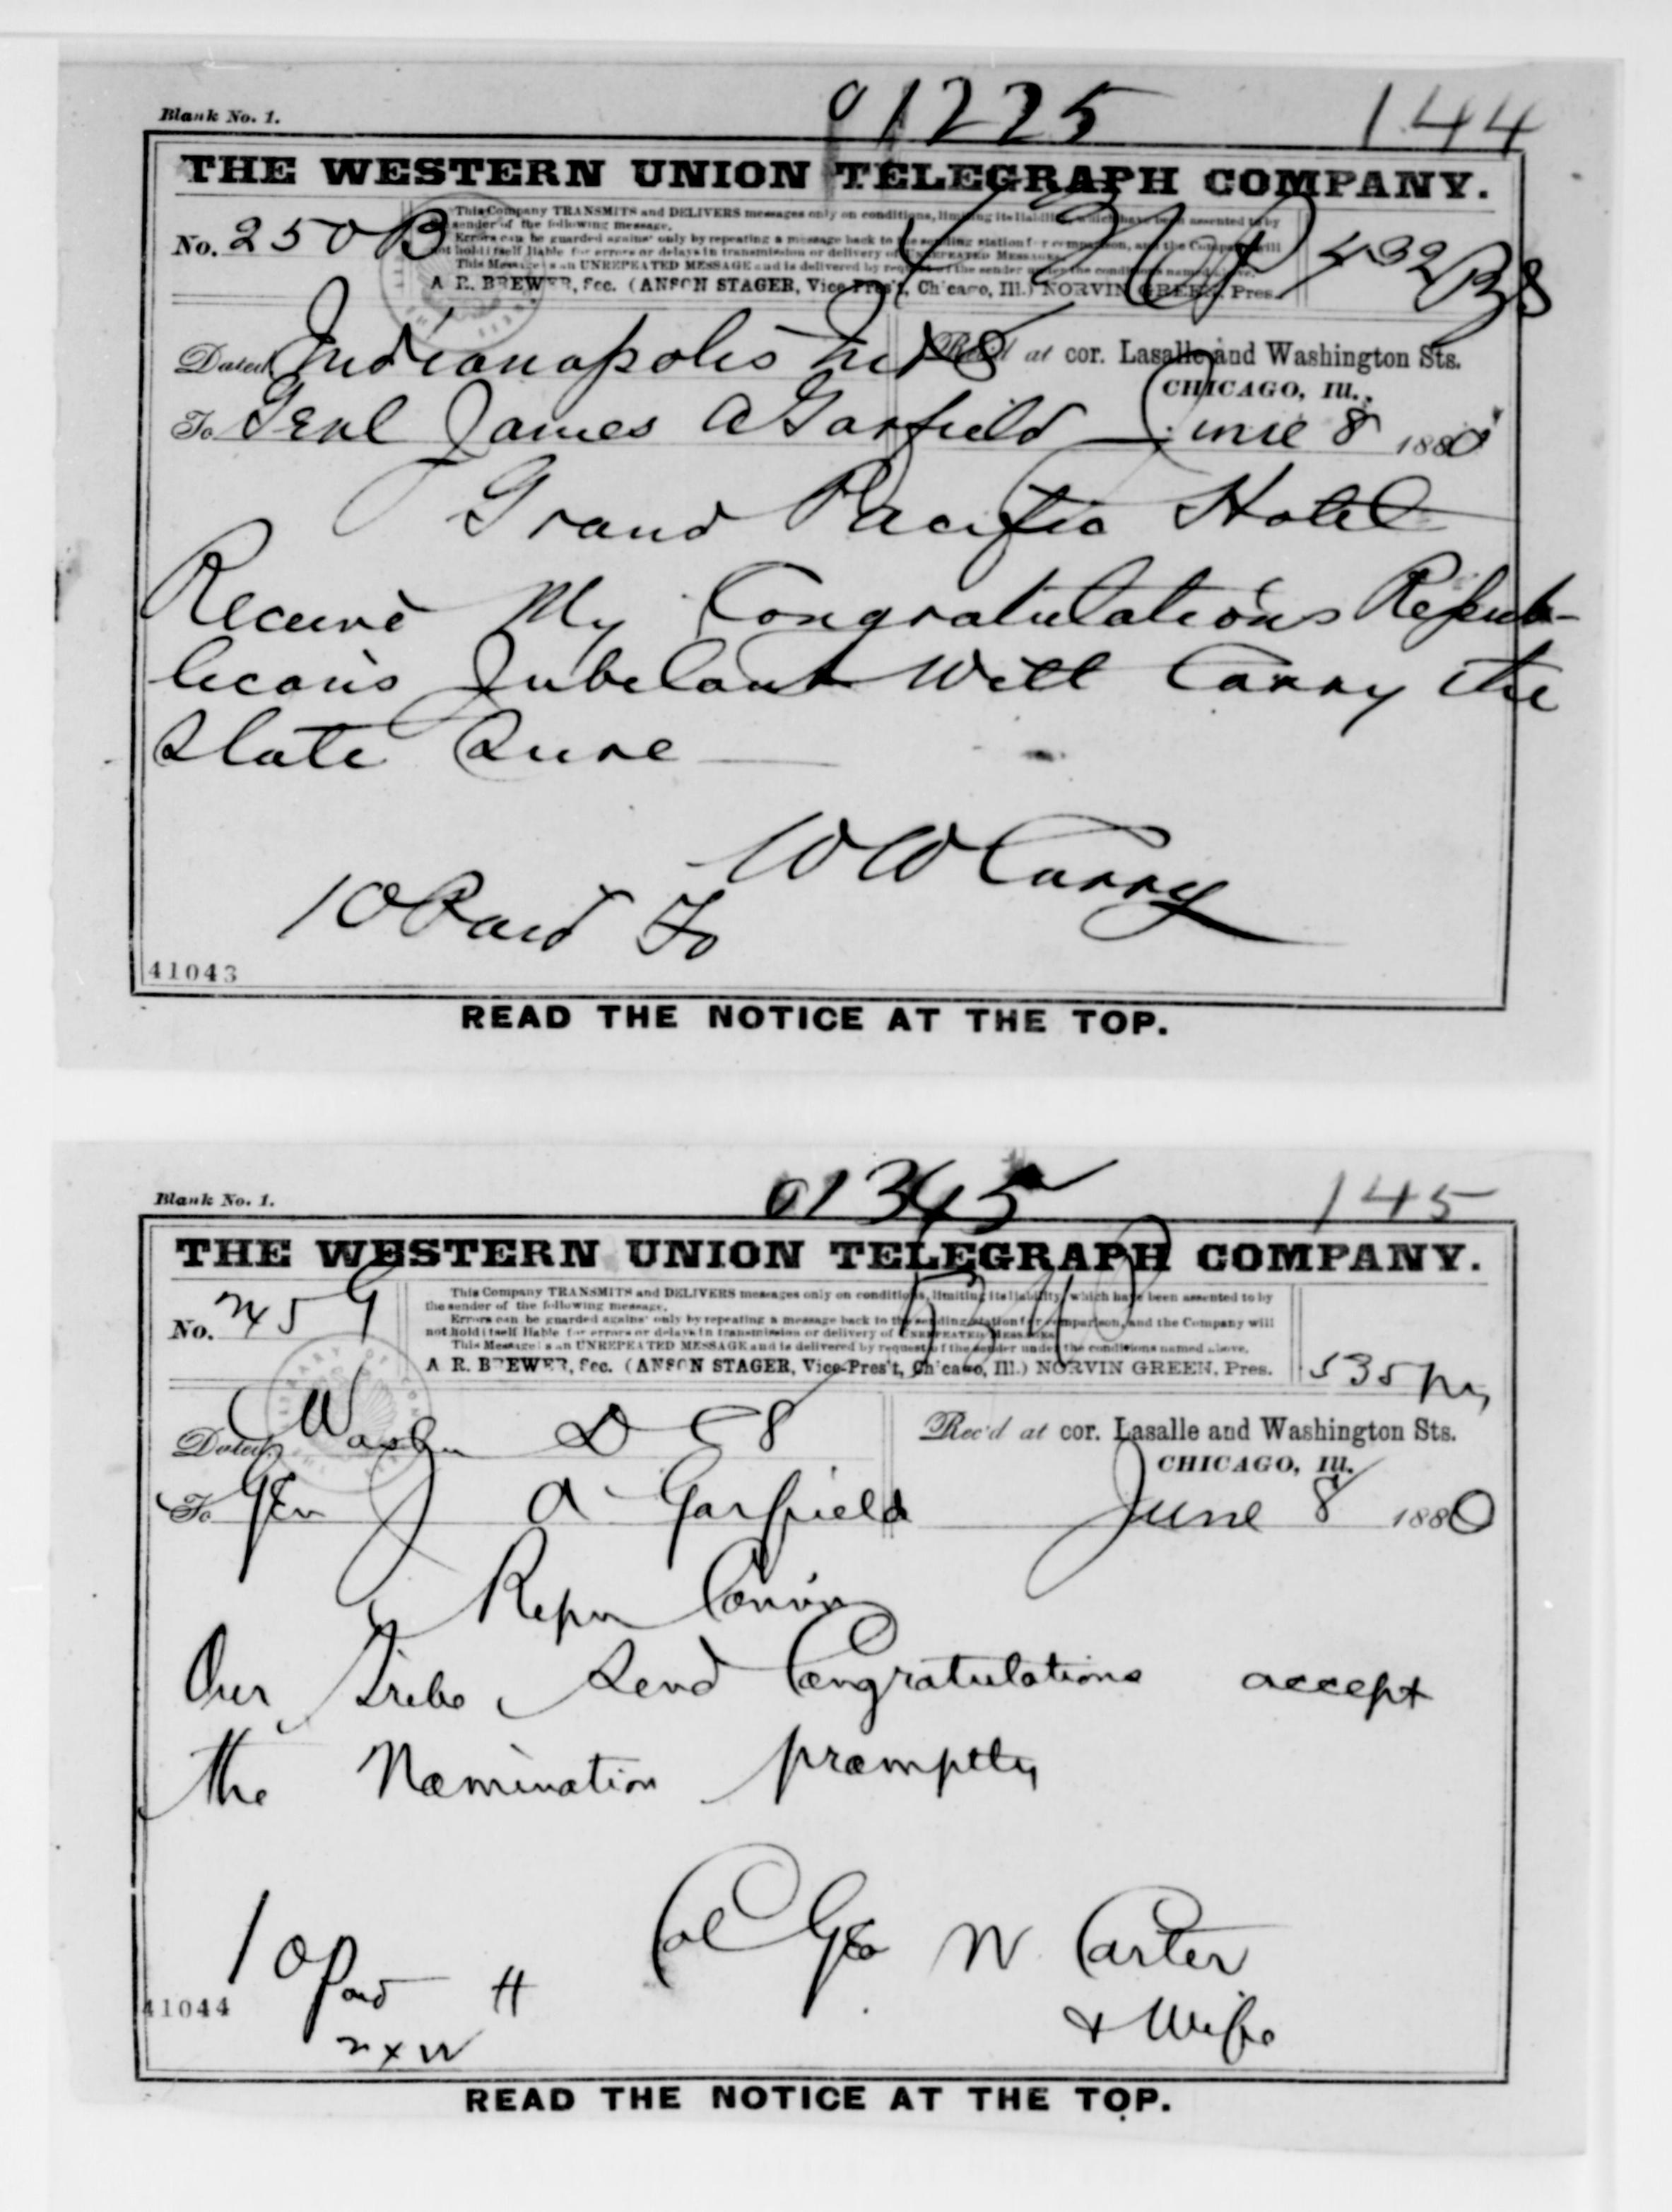 01225
144
Blank No. 1.
THE WESTERN UNION TELEGRAPH COMPANY.
No. 250 B
This Company TRANSMITS and DELIVERS messages only on conditions, limiting its liability, which have been assented to by
the sender of the following message.
Errors can be guarded against only by repeating a message back to the sending station for comparison, and the Company will
not hold itself liable for errors or delays in transmission or delivery of UNREPEATED MESSAGES.
This Message is an UNREPEATED MESSAGE and is delivered by request of the sender under the conditions named above.
A R. BREWER, Sec. (ANSON STAGER, Vice-Pres't, Chicago, Ill.) NORVIN GREEN, Pres.
432
Dated Indianapolis Ind 8
Rec'd at cor. Lasalle and Washington Sts.
CHICAGO, Ill.,
To Genl James A Garfield
June 8 1880
Grand Pacific Hotel
Receive My Congratulations Repub-
licans Jubilant Will Carry the
State Sure
W W Curry
10 Paid
41043
READ THE NOTICE AT THE TOP.
01345
145
Blank No. 1.
THE WESTERN UNION TELEGRAPH COMPANY.
No. 245 G
This Company TRANSMITS and DELIVERS messages only on conditions, limiting its liability, which have been assented to by
the sender of the following message.
Errors can be guarded against only by repeating a message back to the sending station for comparison, and the Company will
not hold itself liable for errors or delays in transmission or delivery of UNREPEATED MESSAGES.
This Message is an UNREPEATED MESSAGE and is delivered by request of the sender under the conditions named above.
A R. BREWER, Sec. (ANSON STAGER, Vice-Pres't, Chicago, Ill.) NORVIN GREEN, Pres.
535 pm
Dated Washn D C 8
Rec'd at cor. Lasalle and Washington Sts.
CHICAGO, Ill.
To Gen J A Garfield
June 8 1880
Repn Convn
Our Tribe Send Congratulations accept
the Nomination promptly
Col Geo W Carter
& Wife
10 Paid H
41044
READ THE NOTICE AT THE TOP.